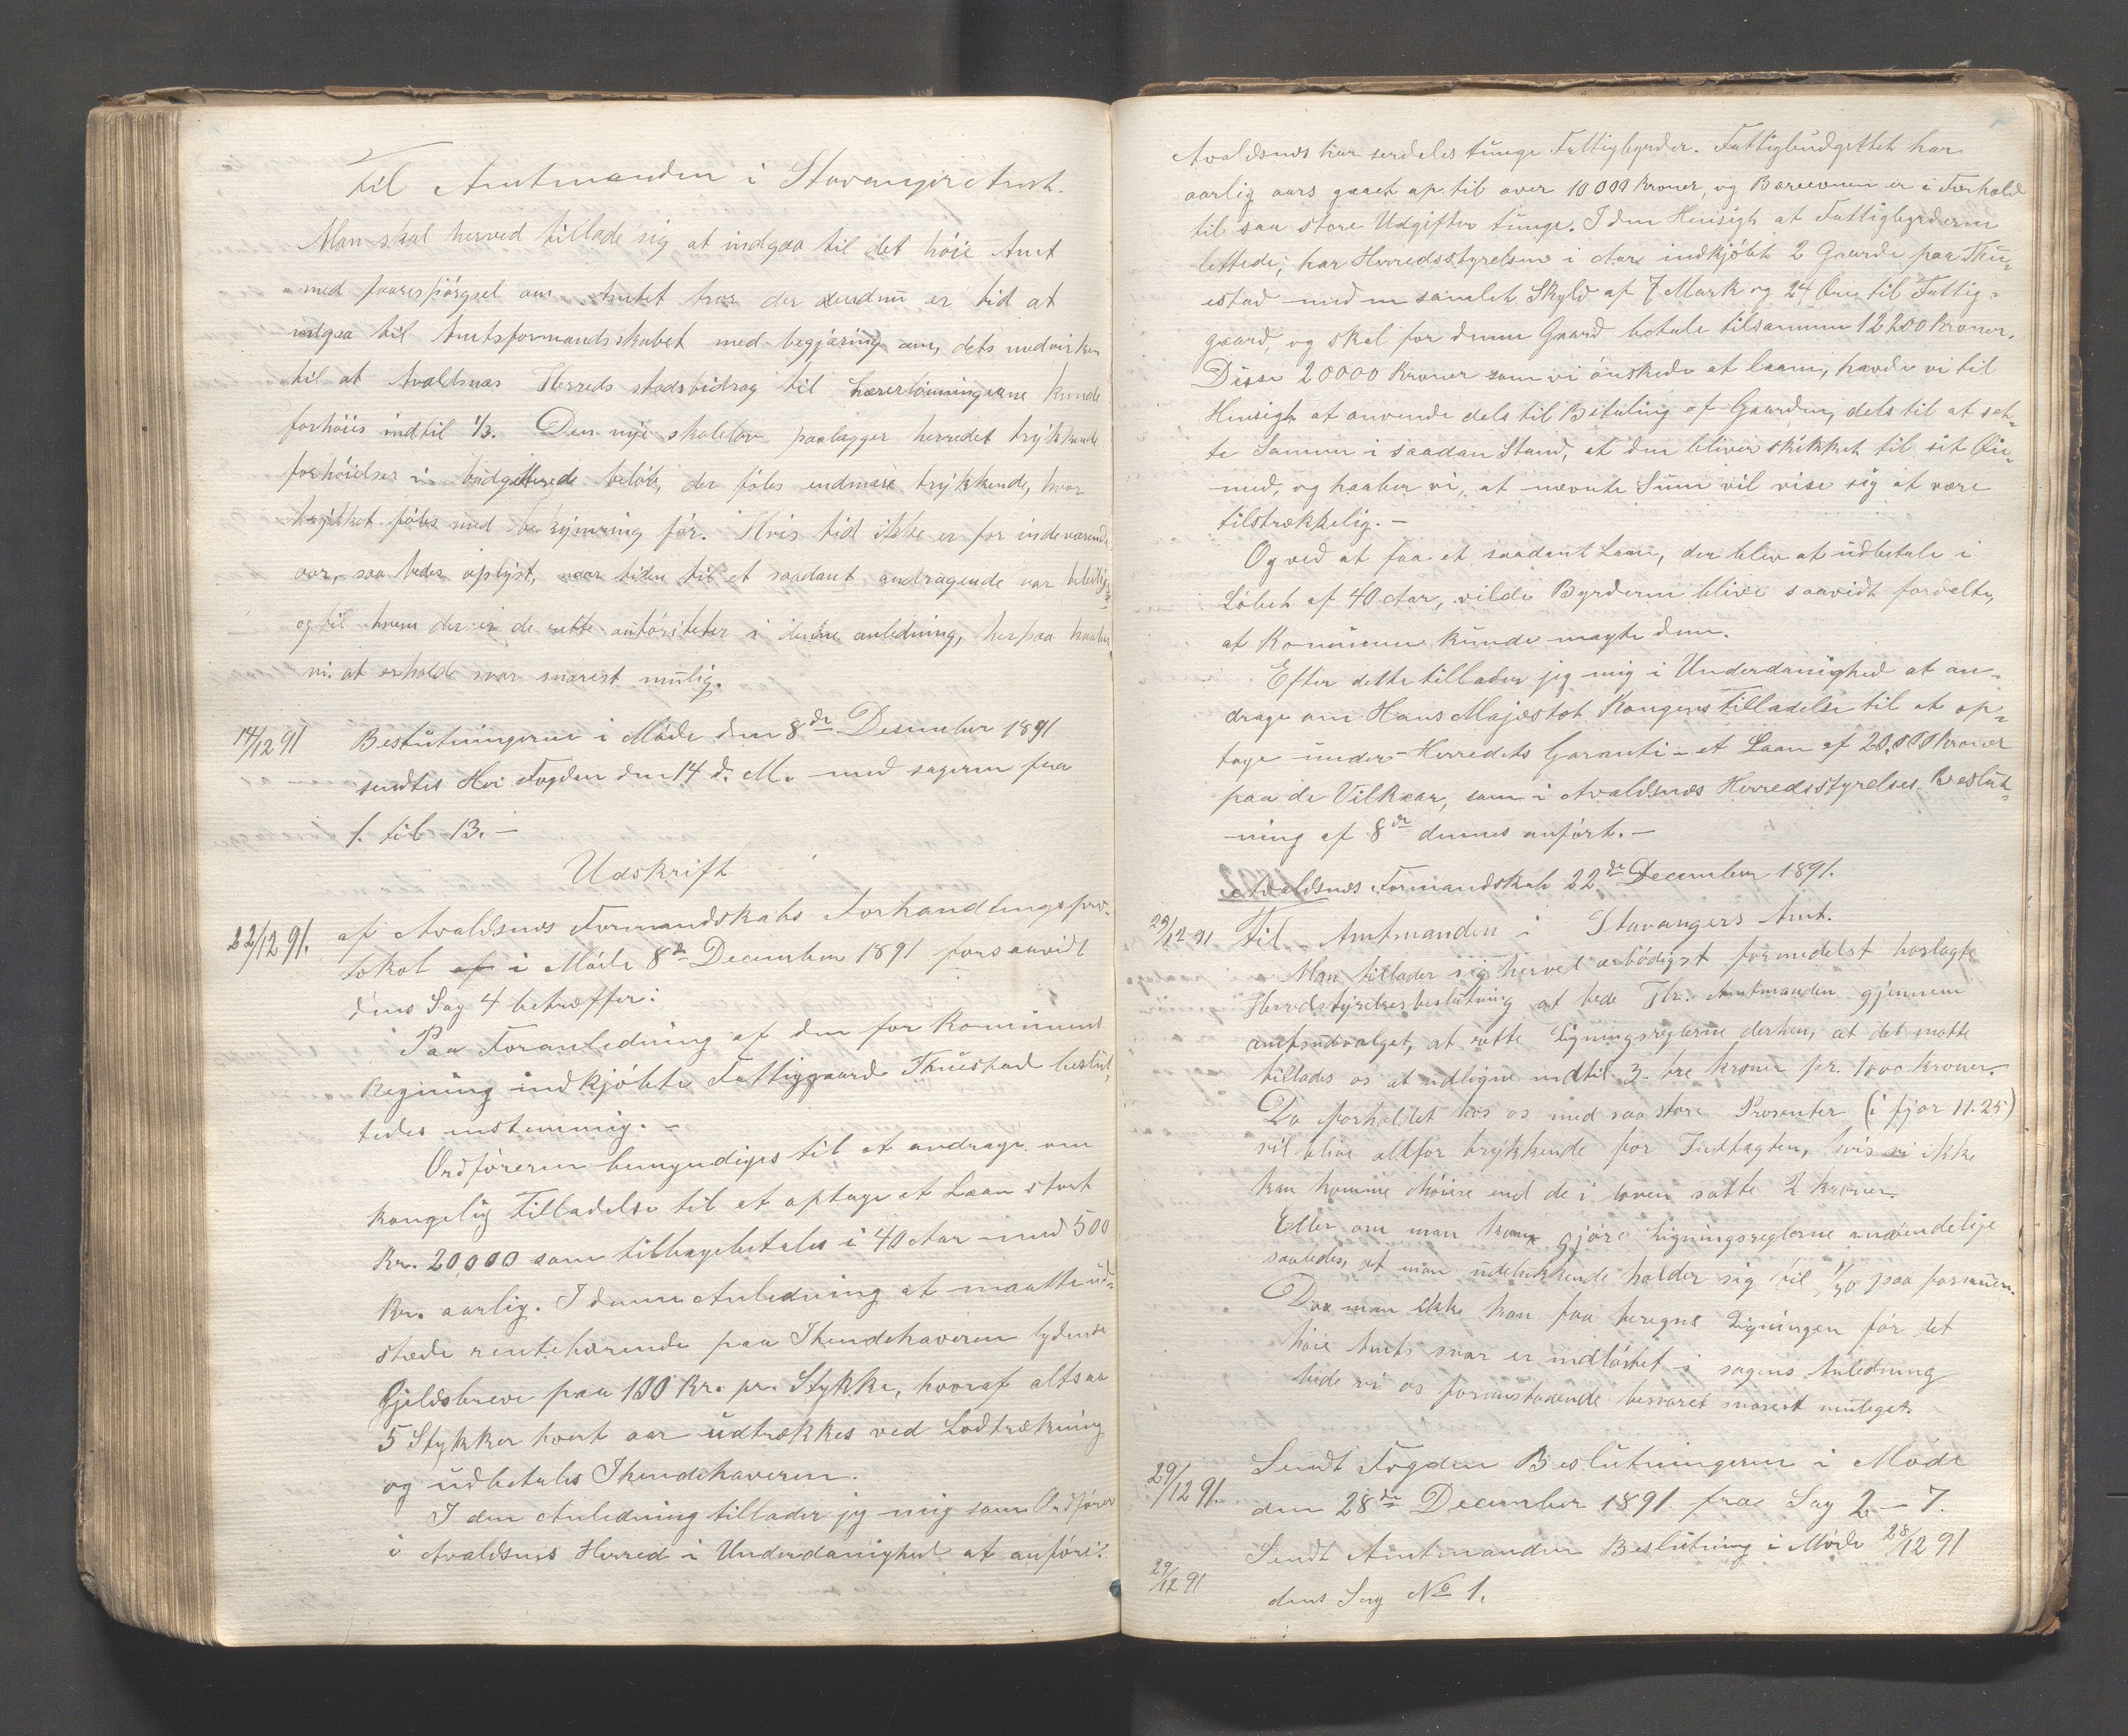 Til Amtmanden i Stavanger Amt.
Man skal herved tillade sig at indgaa til det høie Amt
med foorespörgsel om Amtet tror der endnu er tid at
indgaa til Amtsformandsskabet med begjæring om, dets medvirken
til at Avaldsnæs Herreds stadsbidrag til lærerlönningerne kunde
forhöies indtil 1/3. Den nye skolelov paalægger herredet trykkende
forhöielser i budgetterede belöb, der föles endmere trykkende, hvor
trykket föles med bekymring för. Hvis tid ikke er for indeværende
aar, saa bedes oplyst, naar tiden til et saadant andragende var beleilig
og til hvem der er de rette autoriteter i denne anledning, herpaa haaber
vi at erholde svar snarest mulig.
14/12 91 Beslutningerne i Möde den 8de Desember 1891
sendtes Hr Fogden den 14 d. M. med sagerne fra
1. til 13. —
Udskrift
22/12 91. af Avaldsnes Formandskabs Forhandlingspro-
tokol af i Möde 8de December 1891 forsaavidt
dens Sag 4 betræffer:
Paa Foranledning af den for Kommunens
Regning indkjöbte Fattiggaard Thuestad beslut-
tedes enstemmig. —
Ordföreren bemyndiges til at andrage om
kongelig Tilladelse til at optage et Laan stort
Kr. 20,000 som tilbagebetales i 40 Aar med 500
Kr. aarlig. I denne Anledning at maatte ud-
stede rentebærende paa Ihendehaveren lydende
Gjeldsbreve paa 100 Kr. pr. Stykke, hvoraf altsaa
5 Stykker hvert aar udtrækkes ved Lodtrækning
og udbetales Ihendehaveren.
I den Anledning tillader jeg mig som Ordförer
i Avaldsnes Herred i Underdanighed at anföre:
Avaldsnes har serdeles tunge Fattigbyrder. Fattigbudgettet har
aarlig aars gaaet op til over 10000 Kroner, og Bæreevnen er i Forhold
til saa store Udgifter tunge. I den Hensigt at Fattigbyrderne
lettede, har Herredsstyrelsen i Aar indkjöbt 2 Gaarde paa Thu-
estad med en samlet Skyld af 7 Mark og 24 Øre til Fattig-
gaard, og skal for denne Gaard betale tilsammen 12200 Kroner.
Disse 20000 Kroner som vi önskede at laane, havde vi til
Hensigt at anvende dels til Betaling af Gaarden, dels til at sæt-
te Samme i saadan Stand, at den bliver skikket til sit Øie-
med, og haaber vi, at nævnte Sum vil vise sig at være
tilstrækkelig. —
Og ved at faa et saadant Laan, der blev at udbetale i
Löbet af 40 Aar, vilde Byrderne blive saavidt fordelte,
at Kommunen kunde magte dem.
Efter dette tillader jeg mig i Underdanighed at an-
drage om Hans Majestæt Kongens Tilladelse til at op-
tage under Herredets Garanti et Laan af 20,000 Kroner
paa de Vilkaar, som i Avaldsnes Herredsstyrelses Beslut-
ning af 8de dennes anfört. —
Avaldsnes Formandskab 22de December 1891.
29/12 91 Til Amtmanden i Stavangers Amt.
Man tillader sig herved ærbödigst formedelst hoslagte
Herredstyrelsesbeslutning at bede Hr. Amtmanden gjennem
amtsudvalget, at rette Ligningsreglerne derhen, at det maatte
tillades os at udligne indtil 3 tre kroner pr. 1000 kroner.
Da forholdet hos os med saa store Prosenter (i fjor 11.25)
vil blive altfor trykkende for Indtægten, hvis vi ikke
kan komme höiere end de i loven satte 2 kroner.
Eller om man kan gjöre Ligningsreglerne anvendelige
saaledes, at man udelukkende holder sig til 1/30 paa formuen.
Daa man ikke kan faa beregne Ligningen för det
höie Amts svar er indlöbet i sagens Anledning
bede vi os foranstaaende besvaret snarest muliget.
29/12 91. Sendt Fogden Beslutningerne i Möde
den 28de December 1891 fra Sag 2 – 7.
29/12 91 Sendt Amtmanden Beslutning i Möde 28/12 91
dens Sag No 1.